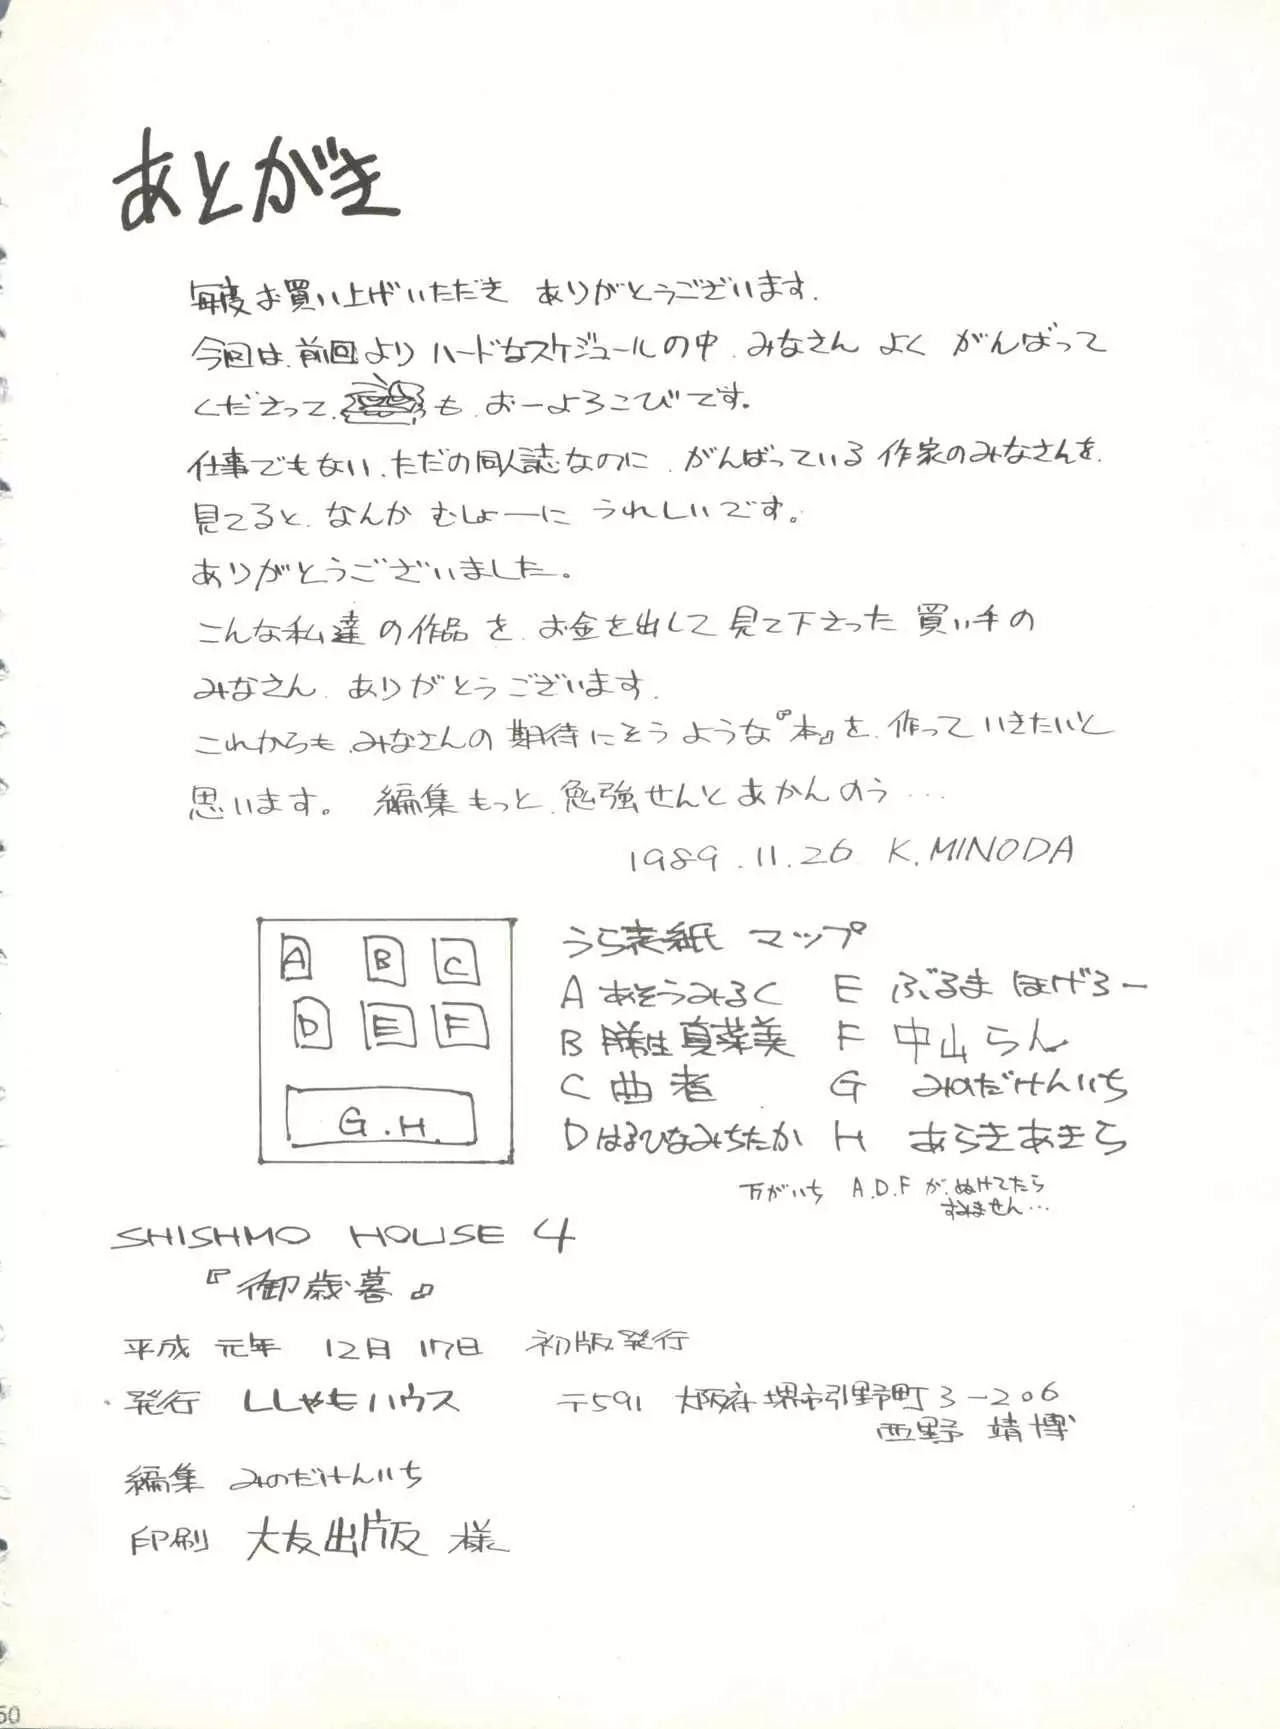 あとがき
毎度お買い上げいただき ありがとうございます.
今回は、前回より ハードなスケジュールの中、みなさん よく がんばって
くださって、 も、おーよろこびです。
仕事でもない、ただの同人誌なのに、がんばっている 作家のみなさんを、
見てると、なんか むしょーに うれしいです。
ありがとうございました。
こんな私達の作品を、お金を出して見て下さった 買い手の
みなさん、ありがとうございます.
これからも、みなさんの期待にそうような『本』を、作っていきたいと
思います。 編集もっと、勉強せんとあかんのう…
1989.11.26 K.MINODA
A B C
D E F
G.H.
うら表紙 マップ
A あそうみるく E ぶるま ほげろー
B 勝生真菜美 F 中山らん
C 曲者 G みのだけんいち
D はるひなみちたか H あらきあきら
万がいち A.D.F が、ぬけてたら
すみません…
SHISHMO HOUSE 4
『御歳暮』
平成 元年 12日 17日 初版発行
発行 ししゃもハウス 〒591 大阪府堺市引野町3-206
西野 靖博
編集 みのだけんいち
印刷 大友出版 様
50